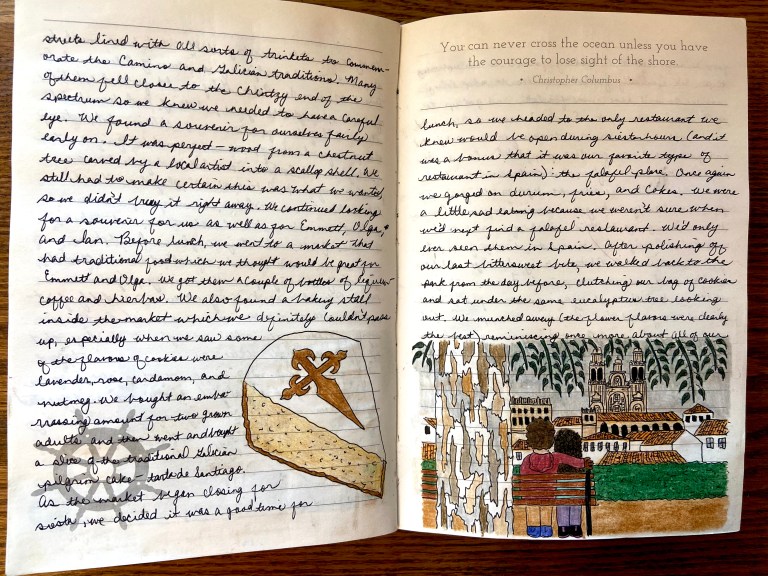 streets lined with all sorts of trinkets to commem-
orate the Camino and Galician traditions. Many
of them fell closer to the chintzy end of the
spectrum so we knew we needed to have a careful
eye. We found a souvenir for ourselves fairly
early on. It was perfect – wood from a chestnut
tree carved by a local artist into a scallop shell. We
still had to make certain this was what we wanted,
so we didn't buy it right away. We continued looking
for a souvenir for us as well as for Emmett, Olga,
and Ian. Before lunch, we went to a market that
had traditional food which we thought would be great for
Emmett and Olga. We got them a couple of bottles of liqueur –
coffee and hierbas. We also found a baking stall
inside the market which we definitely couldn't pass
up, especially when we saw some
of the flavors of cookies were
lavender, rose, cardamom, and
nutmeg. We bought an embar-
rassing amount for two grown
adults and then went and bought
a slice of the traditional Galician
pilgrim cake – tarta de Santiago.
As the market began closing for
siesta, we decided it was a good time for
You can never cross the ocean unless you have
the courage to lose sight of the shore.
• Christopher Columbus •
lunch, so we headed to the only restaurant we
knew would be open during siesta hours (and it
was a bonus that it was our favorite type of
restaurant in Spain): the falafel place. Once again
we gorged on durum, fries, and Cokes. We were
a little sad eating because we weren't sure when
we'd next find a falafel restaurant. We'd only
ever seen them in Spain. After polishing off
our last bittersweet bite, we walked back to the
park from the day before, clutching our bag of cookies
and sat under the same eucalyptus tree looking
out. We munched away (the flower flavors were clearly
the best) reminiscing once more about all of our